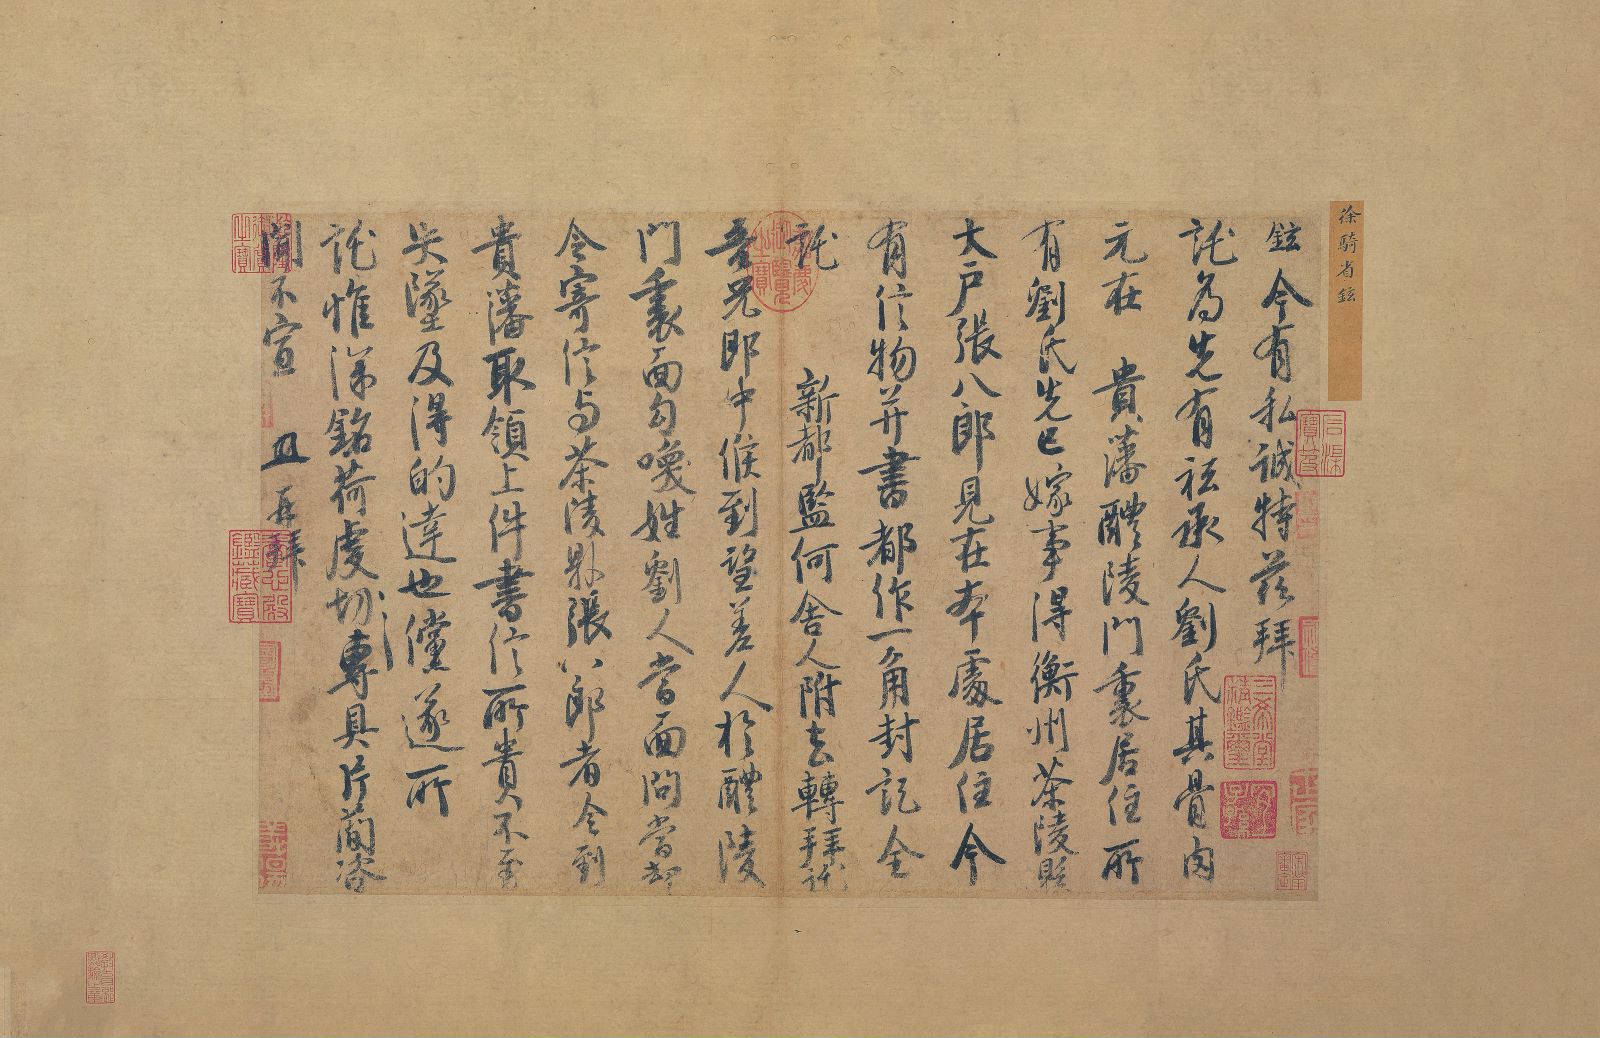 徐騎省鉉
鉉今有私誠特茲拜
託為先有祗承人劉氏其骨肉
元在 貴藩醴陵門裏居住所
有劉氏先已嫁事得衡州茶陵縣
大戶張八郎見在本處居住今
有信物并書都作一角封記全
託 新都監何舍人附去轉拜託
吾兄郎中候到望差人於醴陵
門裏面勾喚姓劉人當面問當却
令寄信与茶陵縣張八郎者令到
貴藩取領上件書信所貴不至
失墜及得的達也儻遂所
託惟深銘荷虔切專具片簡咨
聞不宣 再拜